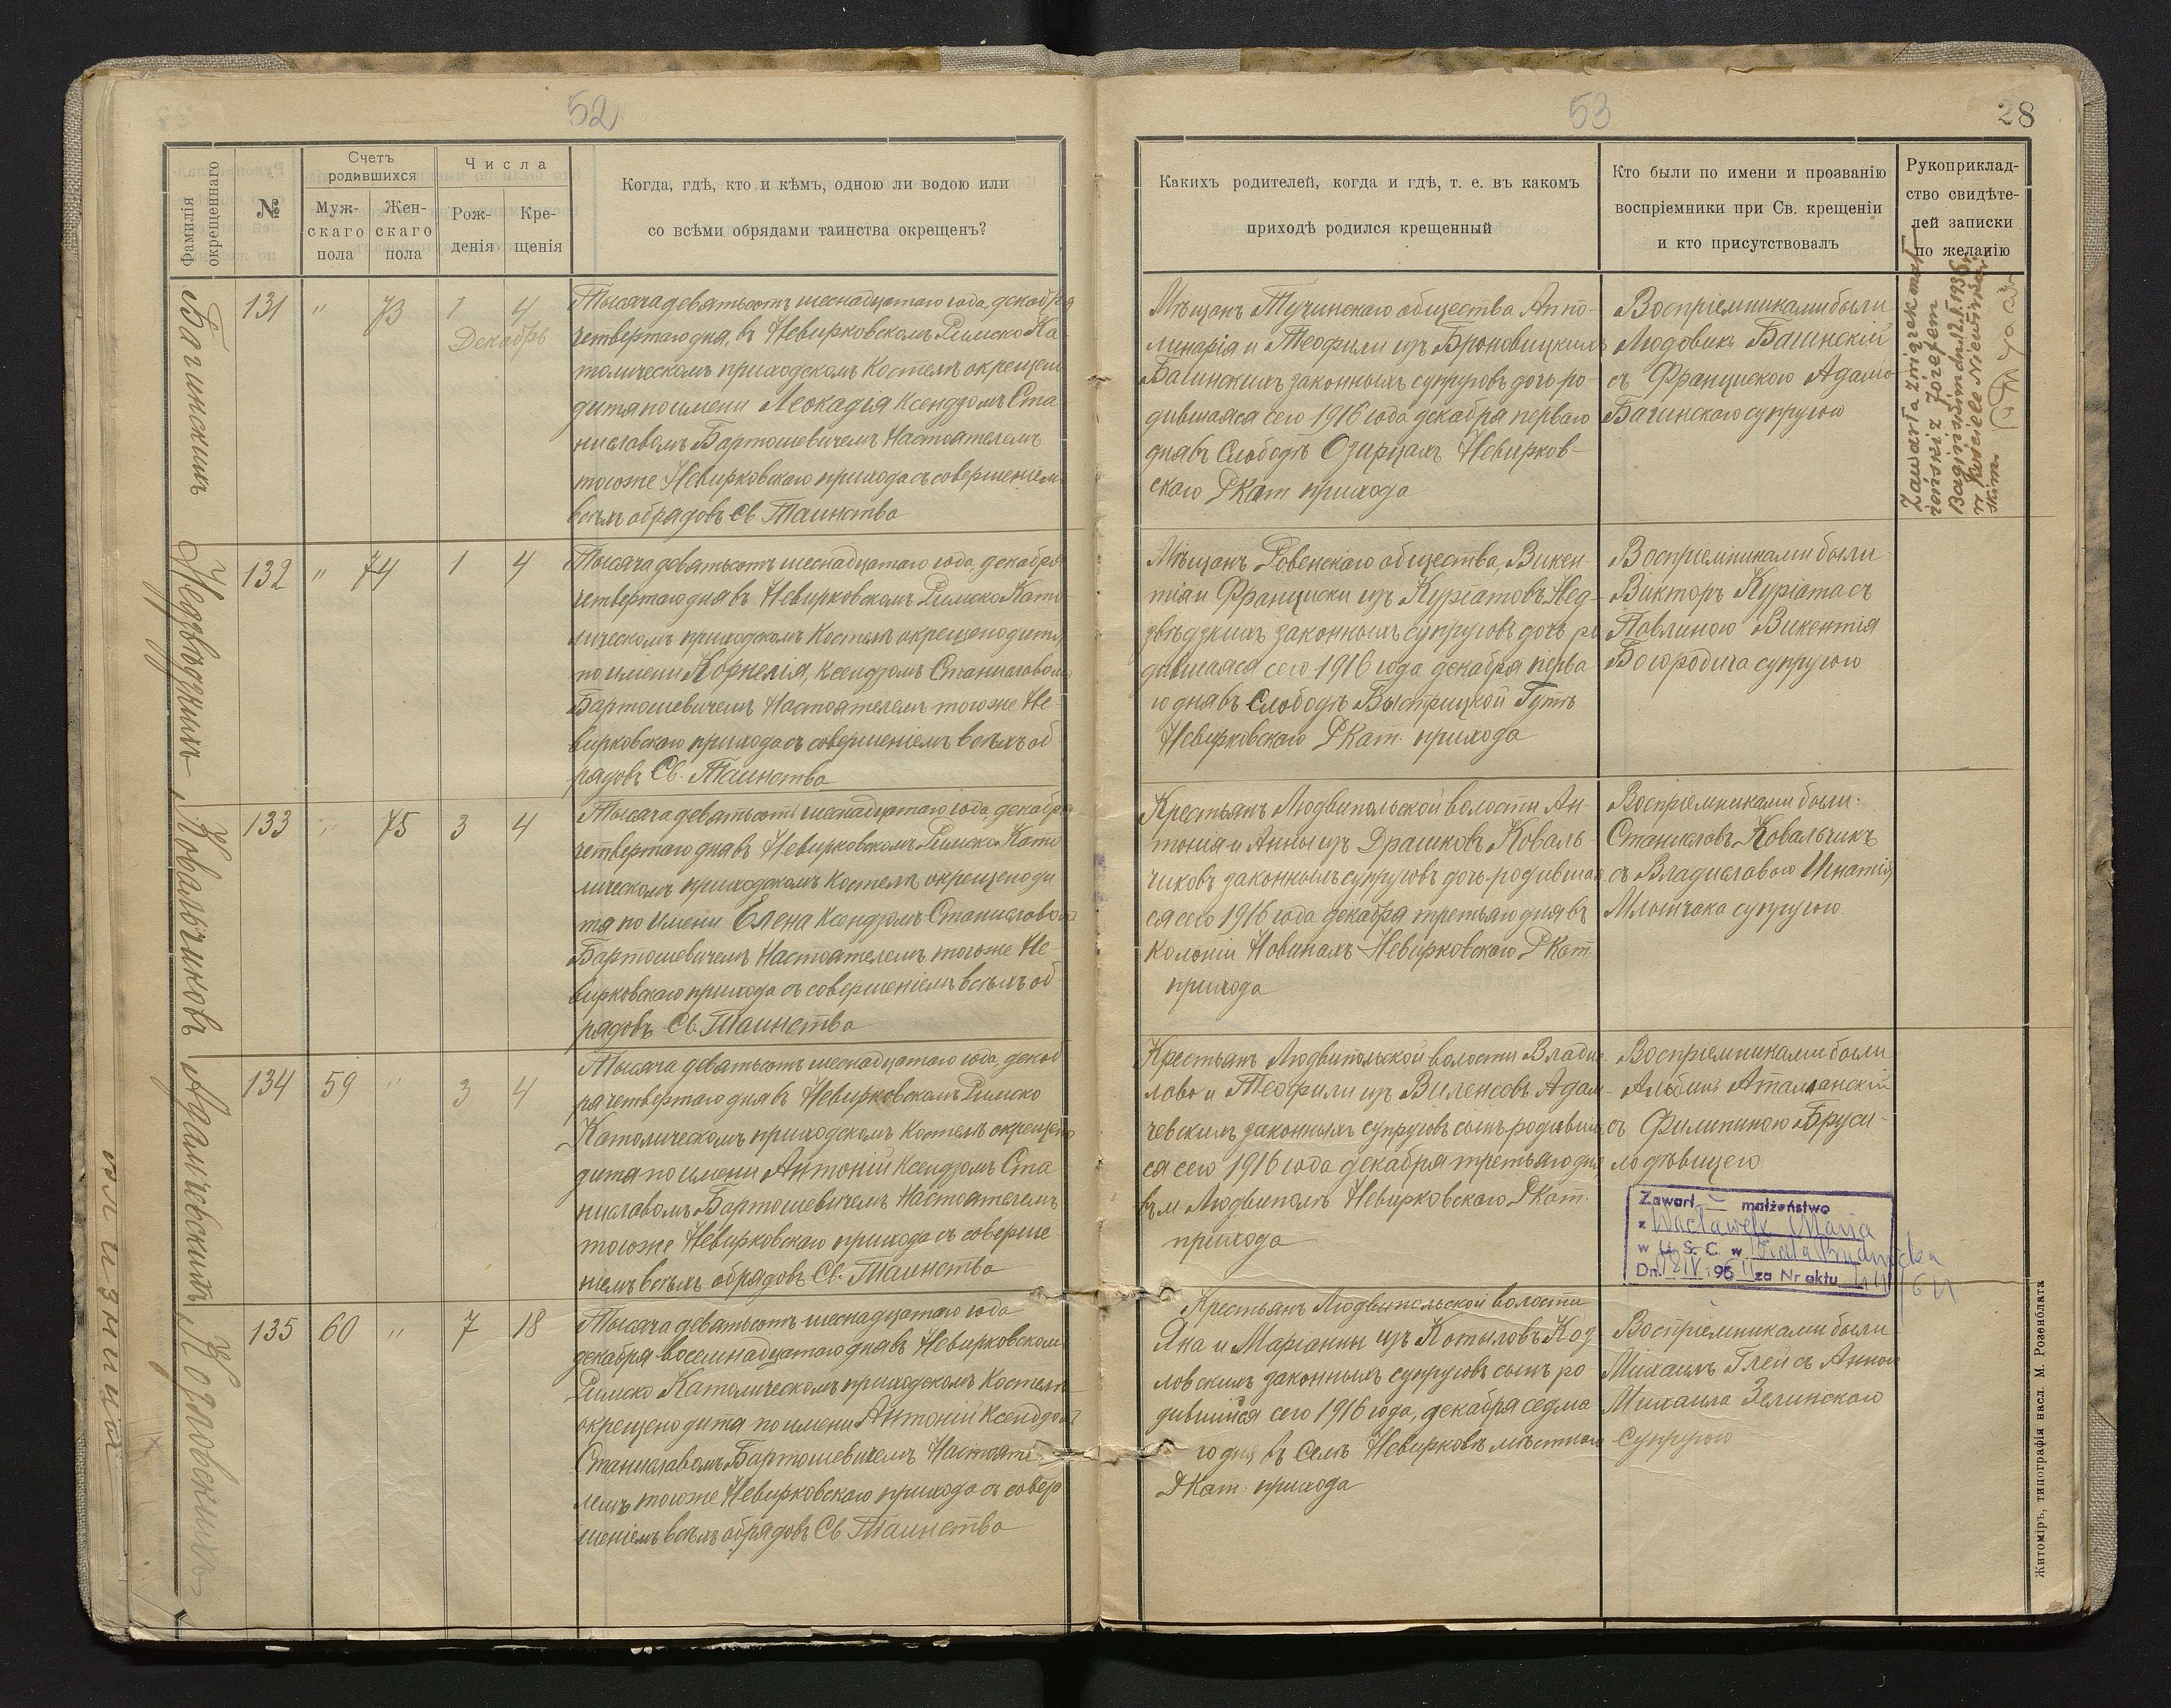 52
Фамилія окрещеннаго
№
Счетъ родившихся
Муж-
скаго
пола
Жен-
скаго
пола
Числа
Рож-
денія
Кре-
щенія
Когда, гдѣ, кто и кѣмъ, одною ли водою или
со всѣми обрядами таинства окрещенъ?
Багинскихъ
131 " 73 1 4
Декабрь
Тысяча девятьсотъ шеснадцатаго года, декабря
четвертаго дня, въ Невирковскомъ Римско Ка
толическомъ приходскомъ Костелѣ окрещено
дитя по имени Леокадія Ксендзомъ Ста
ниславомъ Бартошевичемъ Настоятелемъ
тогоже Невирковскаго прихода съ совершеніемъ
всѣхъ обрядовъ Св Таинства
Недзвѣдзкихъ
132 " 74 1 4
Тысяча девятьсотъ шеснадцатаго года, декабря
четвертаго дня въ Невирковскомъ Римско Като
лическомъ приходскомъ Костелѣ окрещено дитя
по имени Корнелія, Ксендзомъ Станиславомъ
Бартошевичемъ Настоятелемъ тогоже Не-
вирковскаго прихода съ совершеніемъ всѣхъ об
рядовъ Св. Таинства
Ковальчиковъ
133 " 75 3 4
Тысяча девятьсотъ шеснадцатаго года, декабря
четвертаго дня въ Невирковскомъ Римско Като
лическомъ приходскомъ Костелѣ окрещено ди
тя по имени Елена Ксендзомъ Станиславомъ
Бартошевичемъ Настоятелемъ тогоже Не-
вирковскаго прихода съ совершеніемъ всѣхъ об
рядовъ Св. Таинства
Адамчевскихъ
134 59 " 3 4
Тысяча девятьсотъ шеснадцатаго года, декаб
ря четвертаго дня въ Невирковскомъ Римско
Католическомъ приходскомъ Костелѣ окрещено
дитя по имени Антоній Ксендзомъ Ста
ниславомъ Бартошевичемъ Настоятелемъ
тогоже Невирковскаго прихода съ соверше
ніемъ всѣхъ обрядовъ Св. Таинства
Козловскихъ
135 60 " 7 18
Тысяча девятьсотъ шеснадцатаго года
декабря восемнадцатаго дня въ Невирковскомъ
Римско Католическомъ приходскомъ Костелѣ
окрещено дитя по имени Антоній Ксендзомъ
Станиславомъ Бартошевичемъ Настояте
лемъ тогоже Невирковскаго прихода съ совер
шеніемъ всѣхъ обрядовъ Св Таинства
53
28
Какихъ родителей, когда и гдѣ, т. е. въ какомъ
приходѣ родился крещенный
Кто были по имени и прозванію
воспріемники при Св. крещеніи
и кто присутствовалъ
Рукоприклад-
ство свидѣте-
лей записки
по желанію
Мѣщанъ Тучинскаго общества Аппо-
линарія и Теофили изъ Броновицкихъ
Багинскихъ законныхъ супруговъ дочь ро-
дившаяся сего 1916 года декабря перваго
дня въ Слободѣ Озирцахъ Невирков-
скаго РКат прихода
Воспріемниками были
Людовикъ Багинскій
съ Францискою Адама
Багинскаго супругою
Zawarła związek mał-
żeński z Józefem
Bagińskim dn. 12.I.1936 r.
w kościele Niewirkow-
skim.
Мѣщанъ Ровенскаго общества, Викен-
тія и Франциски изъ Куріатовъ Нед-
звѣдзкихъ законныхъ супруговъ дочь ро
дившаяся сего 1916 года декабря перва
го дня въ Слободѣ Быстрицкой Гутѣ
Невирковскаго РКат. прихода
Воспріемниками были
Викторъ Куріата съ
Павлиною Викентія
Богородича супругою
Крестьянъ Людвипольской волости Ан-
тонія и Анны изъ Драшковъ Коваль-
чиковъ законныхъ супруговъ дочь родившая
ся сего 1916 года декабря третьяго дня въ
Колоніи Новинахъ Невирковскаго РКат
прихода
Воспріемниками были:
Станиславъ Ковальчикъ
съ Владиславою Игнатія
Млотчака супругою
Крестьянъ Людвипольской волости Влади
лава и Теофили изъ Виленсовъ Адам-
чевскихъ законныхъ супруговъ сынъ родивший
ся сего 1916 года декабря третьяго дня
въ м. Людвиполѣ Невирковскаго РКат.
прихода
Воспріемниками были
Альбинъ Атаманскій
съ Филипиною Бруси-
ло дѣвицею
Zawarł małżeństwo
z Wacławek Maria
w U. S. C. w
Dn. 195 za Nr aktu
Крестьянъ Людвипольской волости
Яна и Маріанны изъ Котыловъ Коз
ловскихъ законныхъ супруговъ сынъ ро
дившійся сего 1916 года, декабря седма
го дня въ Селѣ Невирковѣ мѣстнаго
РКат. прихода
Воспріемниками были
Михаилъ Глей съ Анною
Михаила Зелинскаго
Супругою
Житоміръ, типографія насл. М. Розенблата